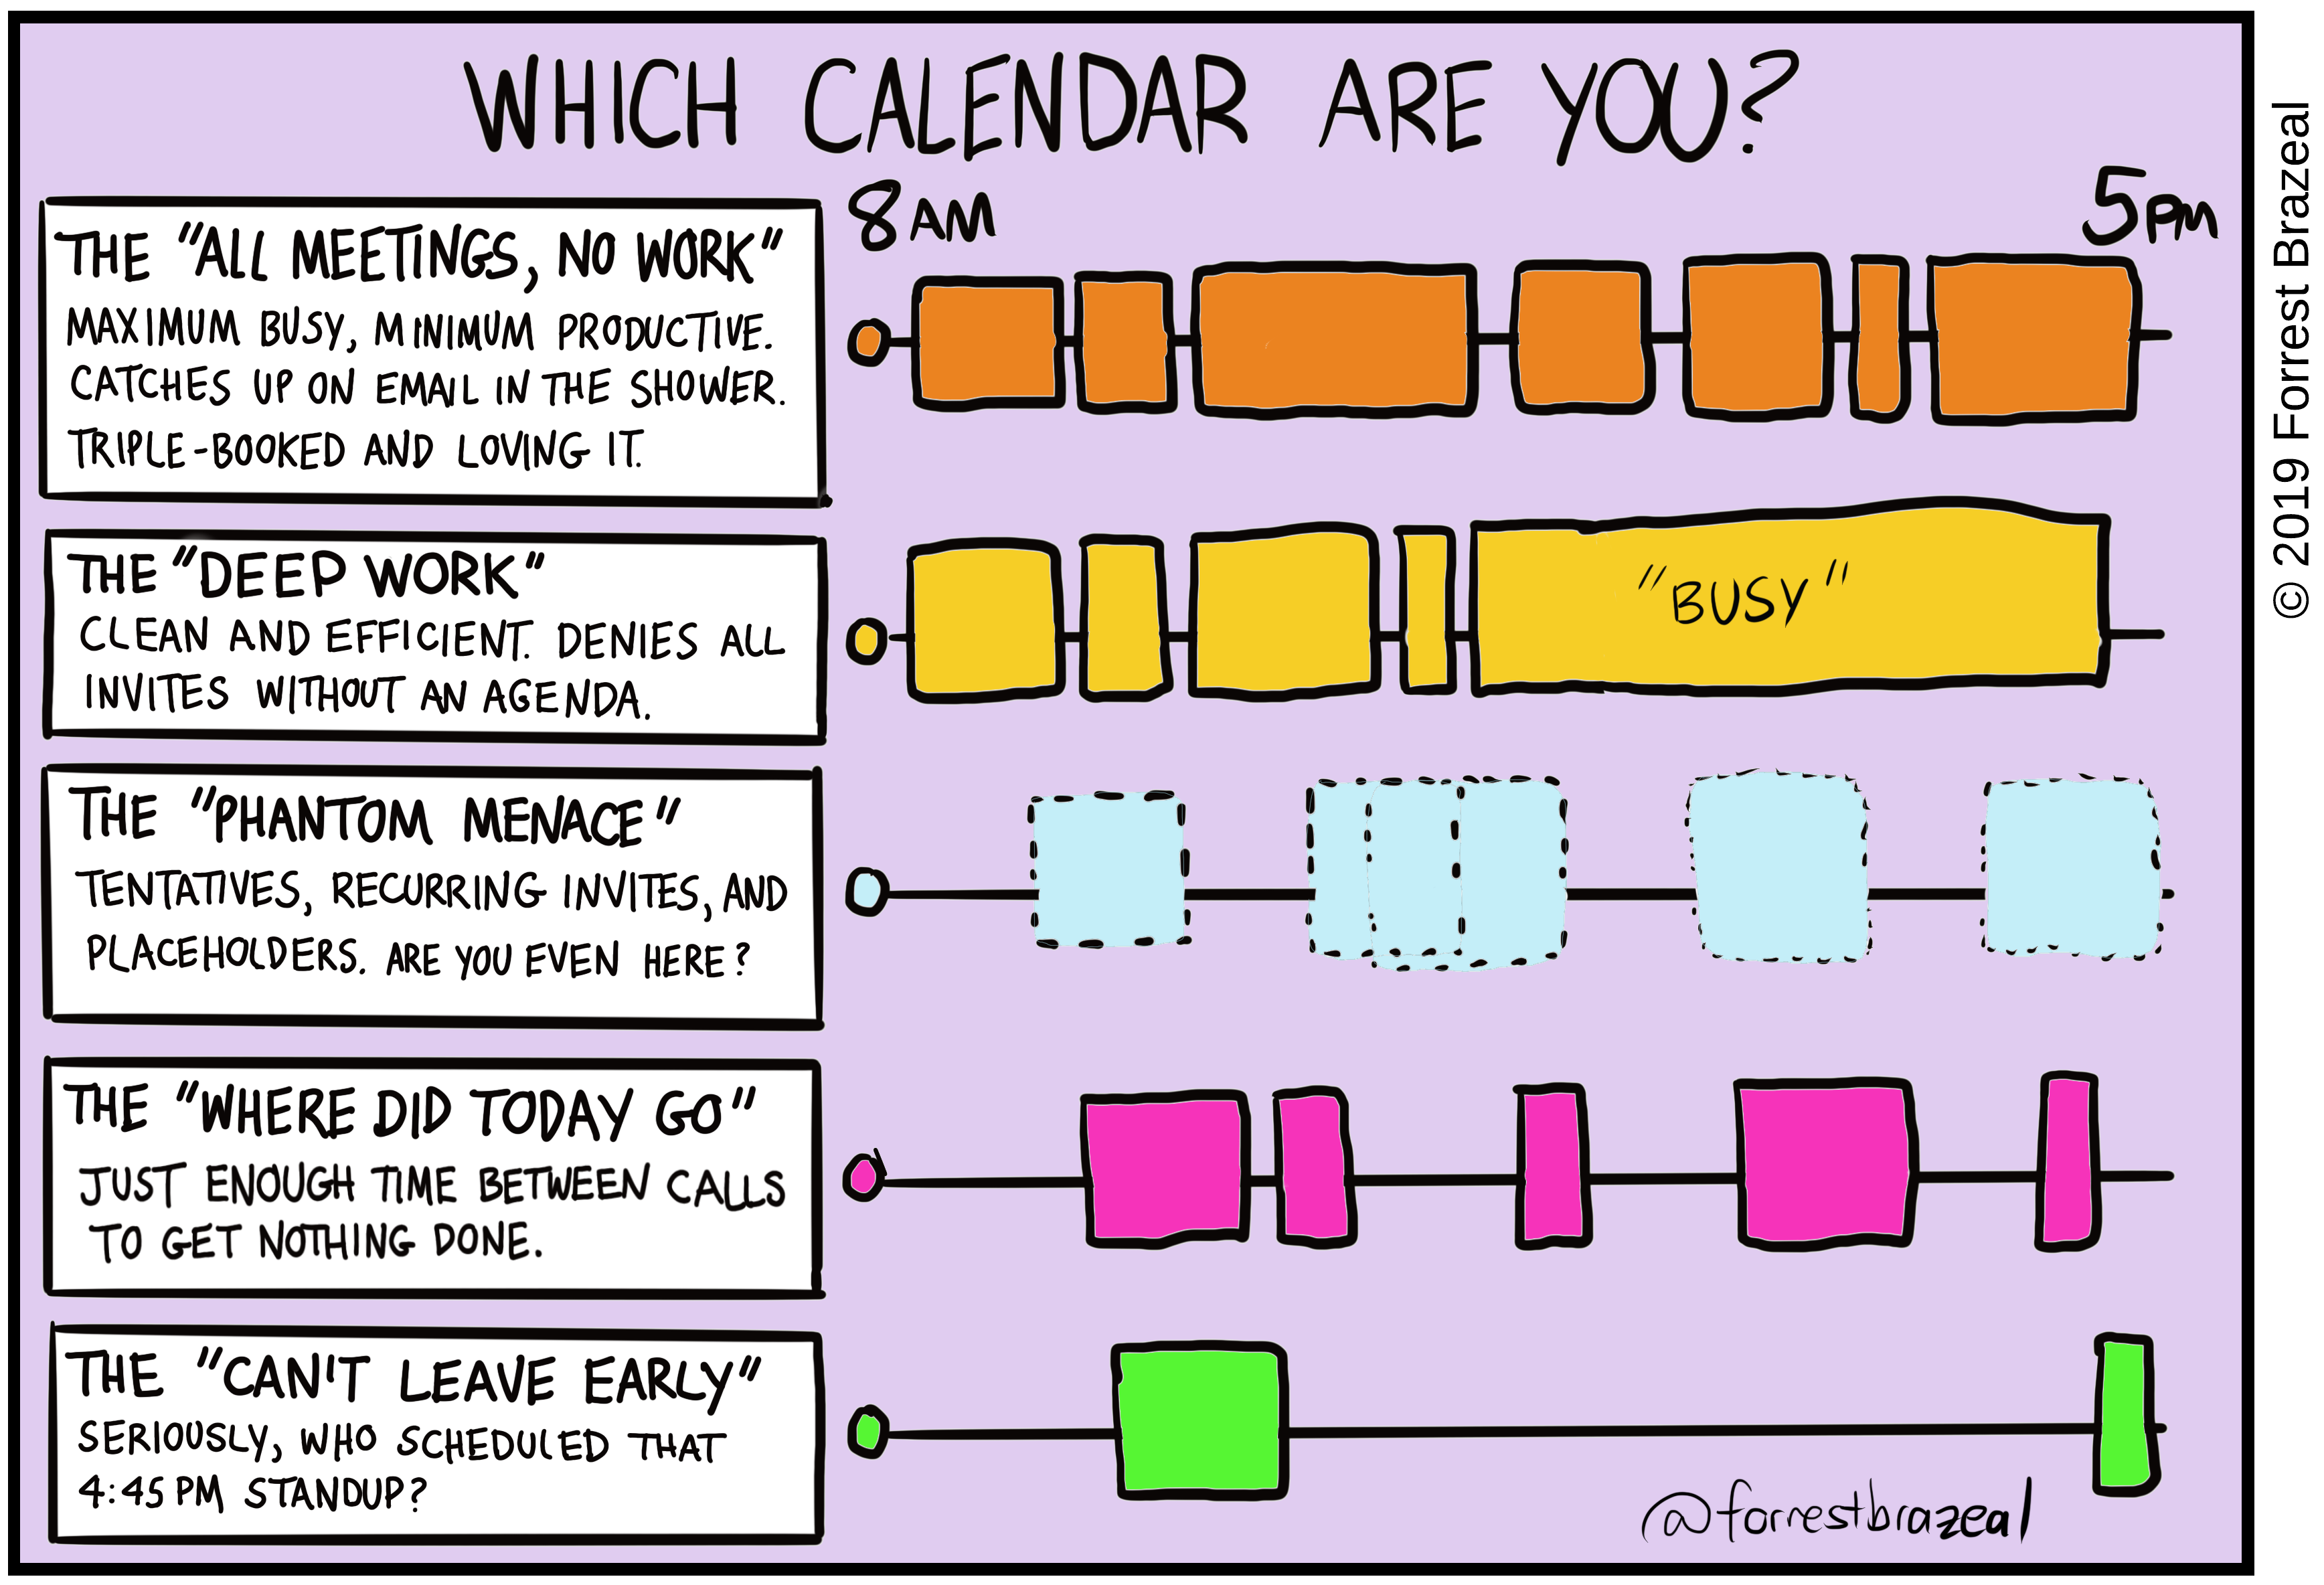 WHICH CALENDAR ARE YOU?
8AM
5PM
THE "ALL MEETINGS, NO WORK"
MAXIMUM BUSY, MINIMUM PRODUCTIVE.
CATCHES UP ON EMAIL IN THE SHOWER.
TRIPLE-BOOKED AND LOVING IT.
THE "DEEP WORK"
CLEAN AND EFFICIENT. DENIES ALL
INVITES WITHOUT AN AGENDA.
"BUSY"
THE "PHANTOM MENACE"
TENTATIVES, RECURRING INVITES, AND
PLACEHOLDERS. ARE YOU EVEN HERE?
THE "WHERE DID TODAY GO"
JUST ENOUGH TIME BETWEEN CALLS
TO GET NOTHING DONE.
THE "CAN'T LEAVE EARLY"
SERIOUSLY, WHO SCHEDULED THAT
4:45 PM STANDUP?
@forrestbrazeal
© 2019 Forrest Brazeal